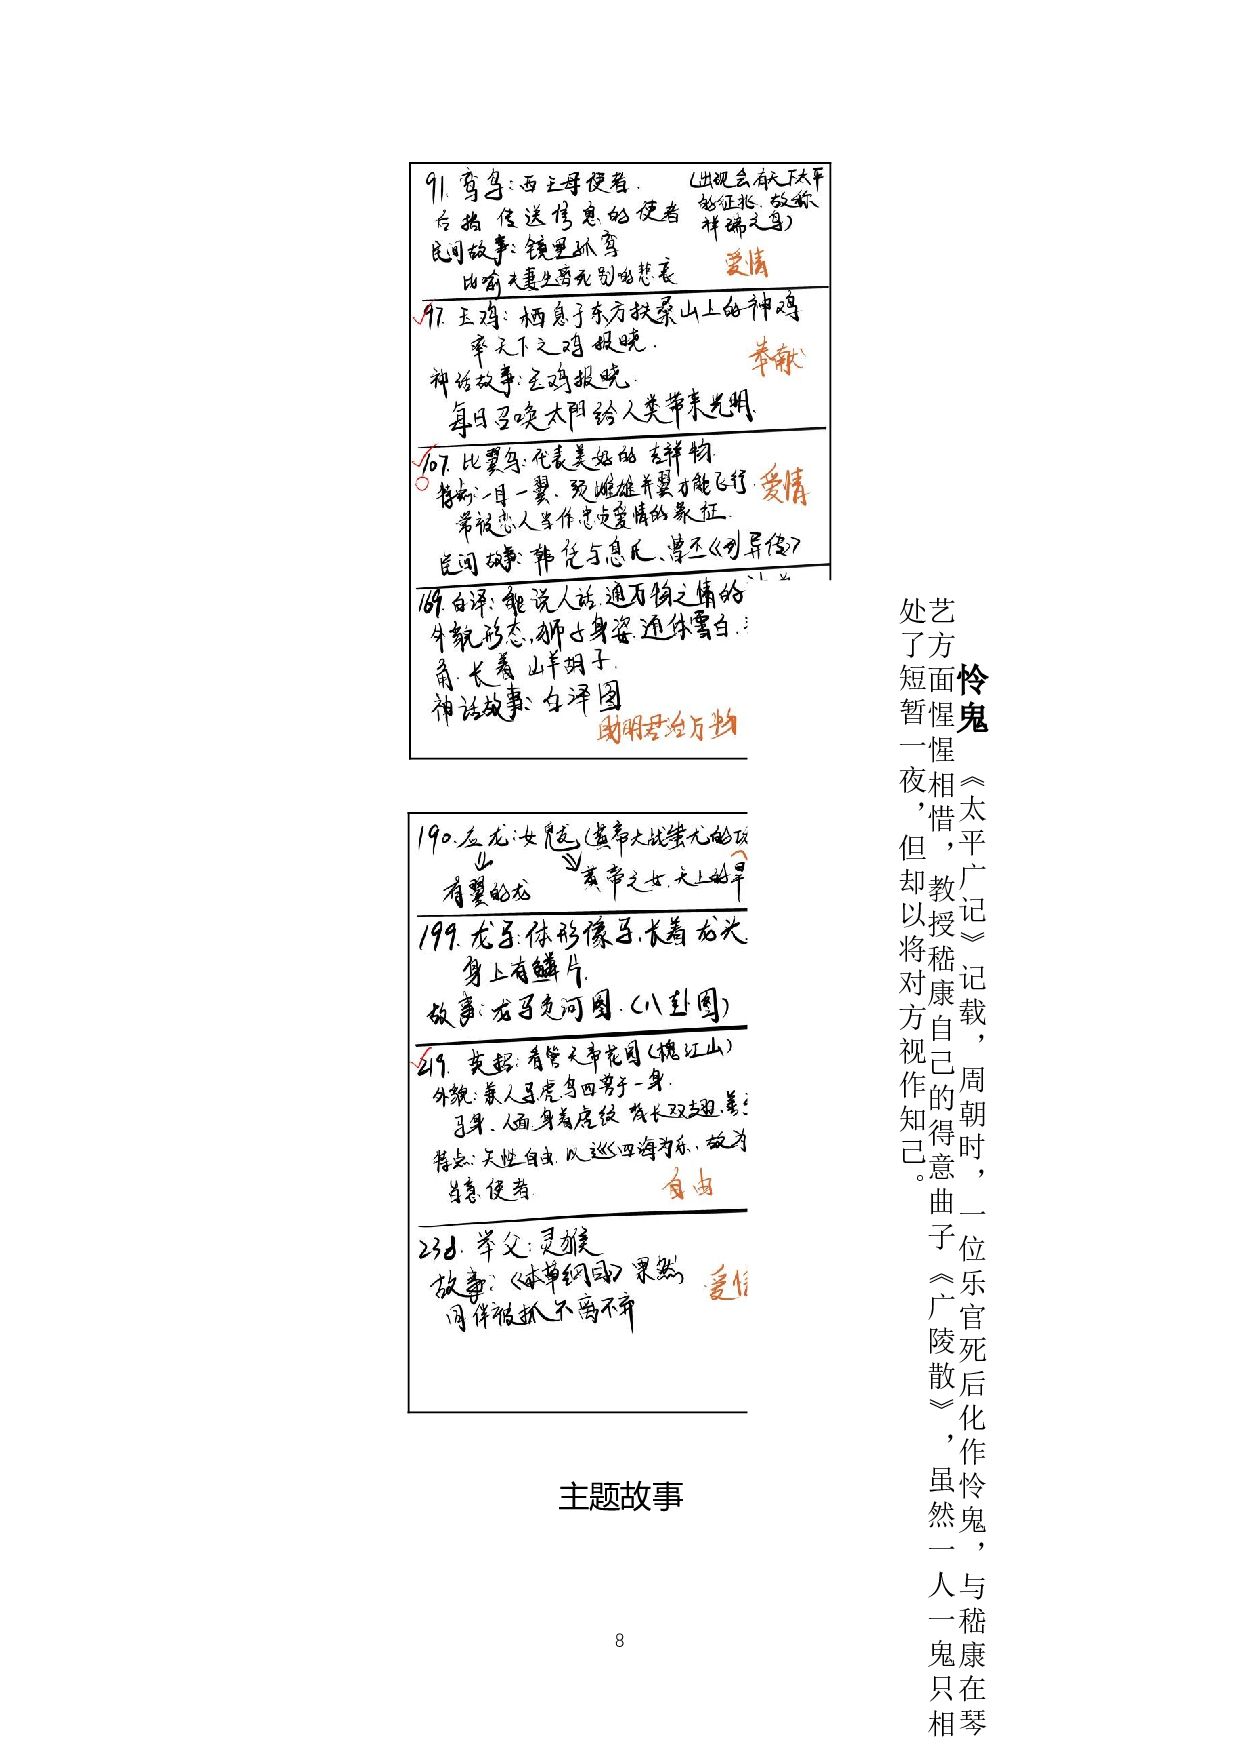 91. 鸾鸟：西王母使者.
(出现会有天下太平
的征兆.故称
祥瑞之鸟)
传送信息的使者
民间故事：镜里孤鸾
爱情
比喻夫妻生离死别的悲哀
97. 玉鸡：栖息于东方扶桑山上的神鸡
率天下之鸡报晓.
奉献
神话故事：玉鸡报晓.
每日召唤太阳给人类带来光明.
107. 比翼鸟：代表美好的吉祥物.
特点：一目一翼.须雌雄并翼才能飞行.
爱情
常被恋人当作忠贞爱情的象征.
民间故事：韩凭与息氏、曹丕《列异传》
169. 白泽：能说人话.通万物之情的
外貌形态，狮子身姿.通体雪白.
角.长着山羊胡子.
神话故事：白泽图
助明君治万物
190. 应龙：女魃(黄帝大战蚩尤的
有翼的龙
黄帝之女.天上的旱
199. 龙马：体形像马.长着龙头
身上有鳞片.
故事：龙马负河图.(八卦图)
219. 英招：看管天帝花园(槐江山)
外貌：兼人马虎鸟四兽于一身.
马身、人面.身着虎纹 背长双翅.
特点：天性自由.以巡四海为乐，故为
使者.
自由
举父：灵猴
故事：《本草纲目》果然
爱情
同伴被抓不离不弃
怜鬼 《太平广记》记载，周朝时，一位乐官死后化作怜鬼，与嵇康在琴
艺方面惺惺相惜，教授嵇康自己的得意曲子《广陵散》，虽然一人一鬼只相
处了短暂一夜，但却以将对方视作知己。
主题故事
8